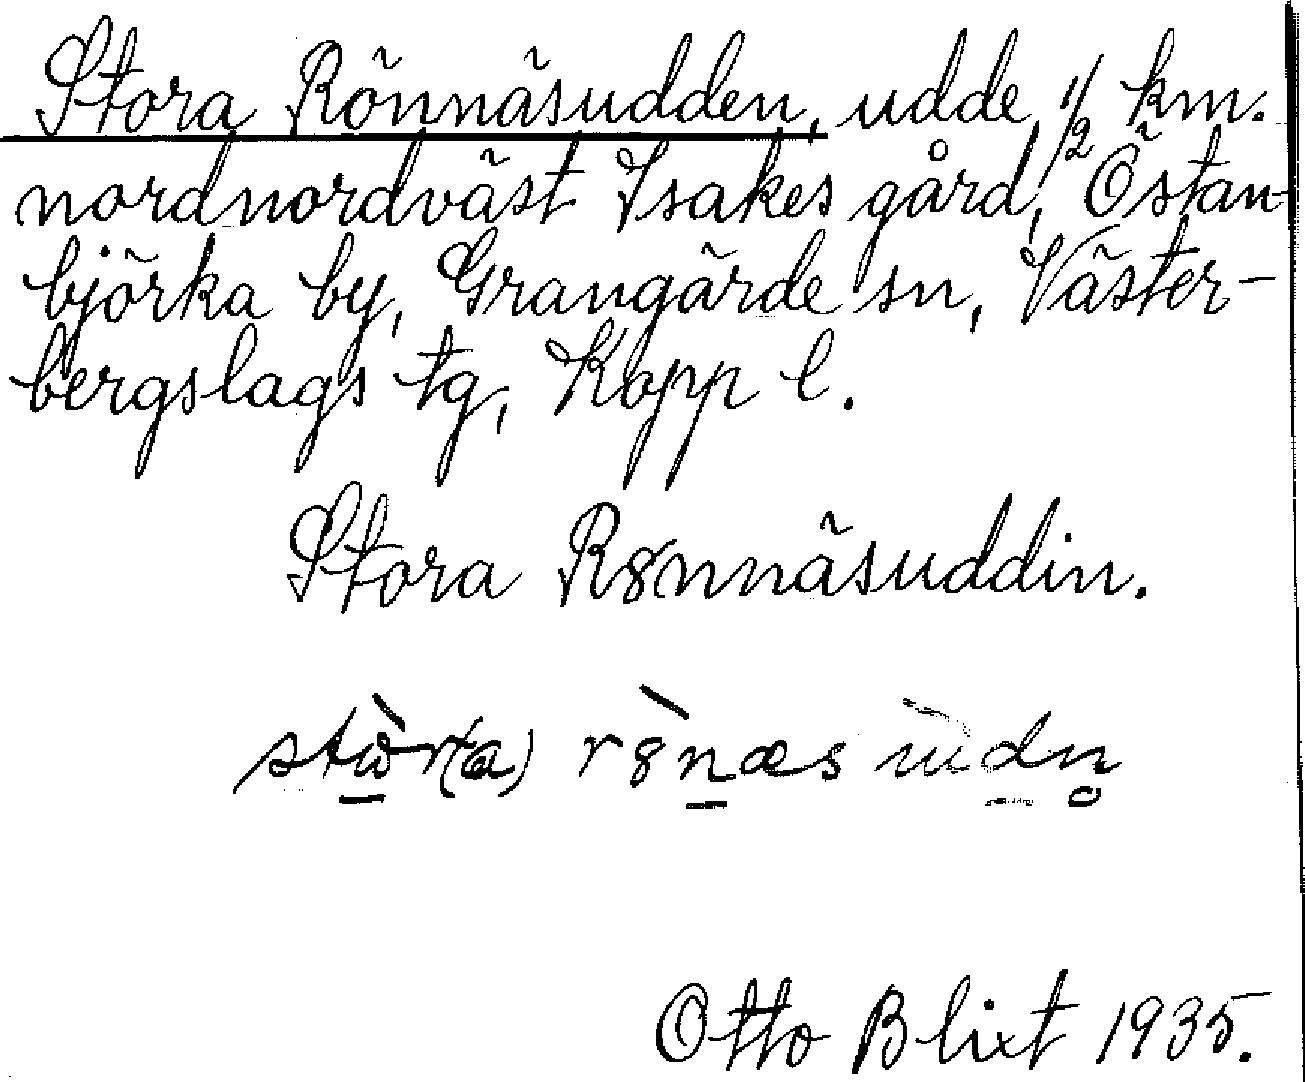 Stora Rönnäsudden, udde 1/2 km.
nordnordväst Isakes gård, Östan-
björka by, Grangärde sn, Väster-
bergslags tg, Kopp l.
Stora R8nnäsuddin.
stὼr(a) r8̀næs ùdn̥
Otto Blixt 1935.